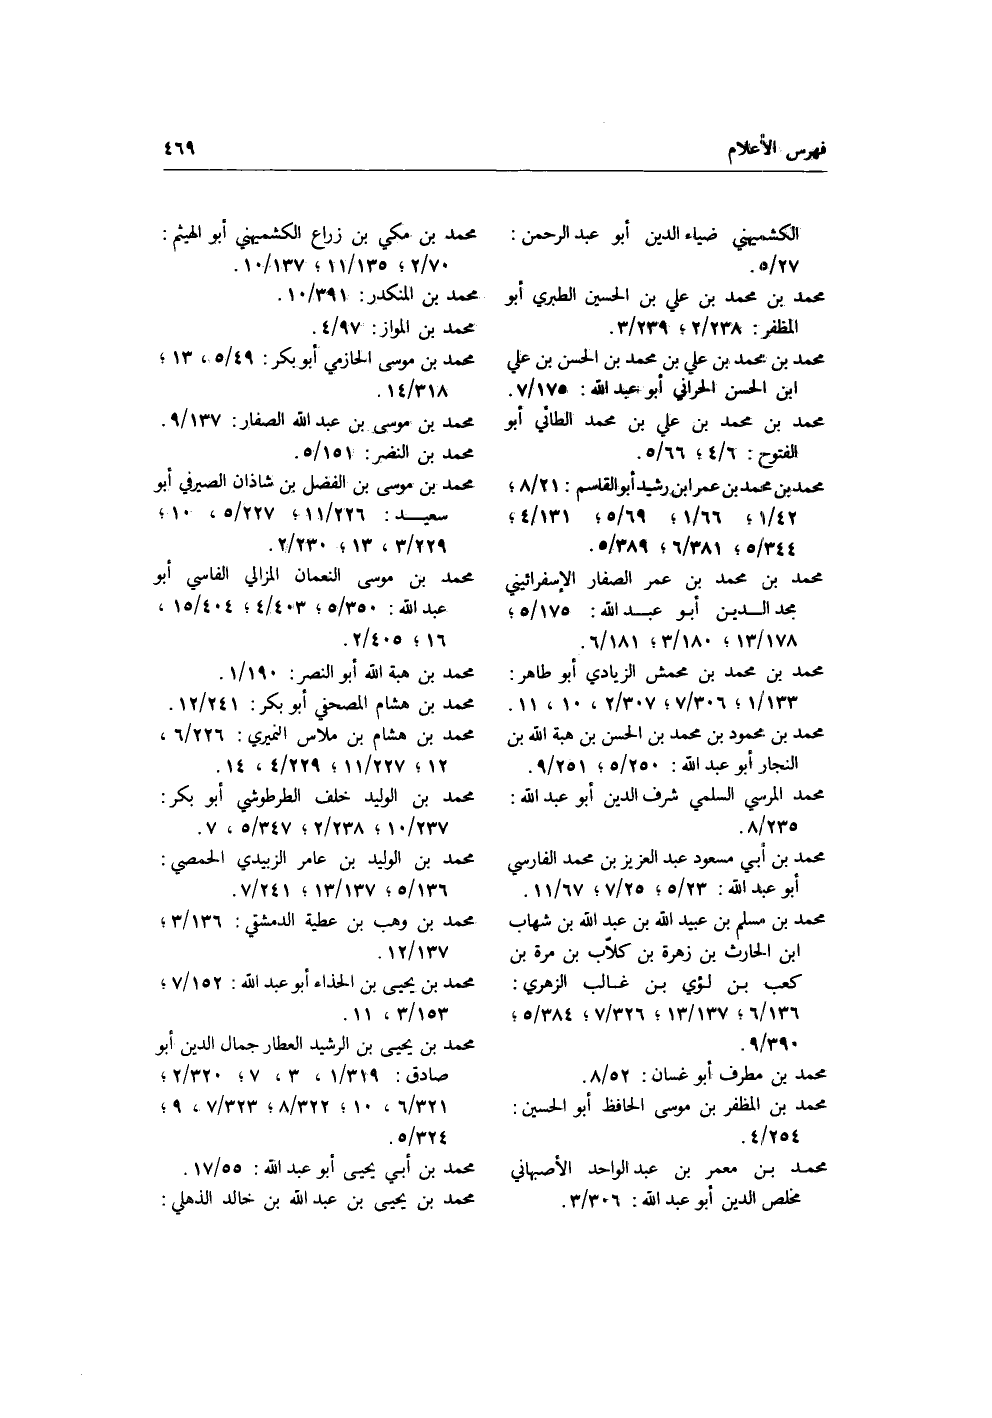 فهرس الأعلام ٤٦٩
الكشميهني ضياء الدين أبو عبد الرحمن :
٥/٢٧.
محمد بن محمد بن علي بن الحسين الطبري أبو
المظفر : ٢/٢٣٨ ؛ ٣/٢٣٩.
محمد بن محمد بن علي بن محمد بن الحسن بن علي
ابن الحسن الحراني أبو عبد الله : ٧/١٧٥.
محمد بن محمد بن علي بن محمد الطائي أبو
الفتوح : ٤/٦ ؛ ٥/٦٦.
محمد بن محمد بن عمر ابن رشيد أبو القاسم : ٨/٢١ ؛
١/٤٢ ؛ ١/٦٦ ؛ ٥/٦٩ ؛ ٤/١٣١ ؛
٥/٣٤٤ ؛ ٦/٣٨١ ؛ ٥/٣٨٩.
محمد بن محمد بن عمر الصفار الإسفرائيني
مجد الـــدين أبـو عبـــد الله : ٥/١٧٥ ؛
١٣/١٧٨ ؛ ٣/١٨٠ ؛ ٦/١٨١.
محمد بن محمد بن محمش الزيادي أبو طاهر :
١/١٣٣ ؛ ٧/٣٠٦ ؛ ٢/٣٠٧ ، ١٠ ، ١١.
محمد بن محمود بن محمد بن الحسن بن هبة الله بن
النجار أبو عبد الله : ٥/٢٥٠ ؛ ٩/٢٥١.
محمد المرسي السلمي شرف الدين أبو عبد الله :
٨/٢٣٥.
محمد بن أبي مسعود عبد العزيز بن محمد الفارسي
أبو عبد الله : ٥/٢٣ ؛ ٧/٢٥ ؛ ١١/٦٧.
محمد بن مسلم بن عبيد الله بن عبد الله بن شهاب
ابن الحارث بن زهرة بن كلاّب بن مرة بن
كعب بـن لـؤي بـن غـالب الزهري :
٦/١٣٦ ؛ ١٣/١٣٧ ؛ ٧/٣٢٦ ؛ ٥/٣٨٤ ؛
٩/٣٩٠.
محمد بن مطرف أبو غسان : ٨/٥٢.
محمد بن المظفر بن موسى الحافظ أبو الحسين :
٤/٢٥٤.
محمـد بـن معمر بن عبد الواحد الأصبهاني
مخلص الدين أبو عبد الله : ٣/٣٠٦.
محمد بن مكي بن زراع الكشميهني أبو الهيثم :
٢/٧٠ ؛ ١١/١٣٥ ؛ ١٠/١٣٧.
محمد بن المنكدر : ١٠/٣٩١.
محمد بن المواز : ٤/٩٧.
محمد بن موسى الحازمي أبو بكر : ٥/٤٩ ، ١٣ ؛
١٤/٣١٨.
محمد بن موسى بن عبد الله الصفار : ٩/١٣٧.
محمد بن النضر : ٥/١٥١.
محمد بن موسى بن الفضل بن شاذان الصيرفي أبو
سعيـــد : ١١/٢٢٦ ؛ ٥/٢٢٧ ، ١٠ ؛
٣/٢٢٩ ، ١٣ ؛ ٢/٢٣٠.
محمد بن موسى النعمان المزالي الفاسي أبو
عبد الله : ٥/٣٥٠ ؛ ٤/٤٠٣ ؛ ١٥/٤٠٤ ،
١٦ ؛ ٢/٤٠٥.
محمد بن هبة الله أبو النصر : ١/١٩٠.
محمد بن هشام المصحفي أبو بكر : ١٢/٢٤١.
محمد بن هشام بن ملاس النميري : ٦/٢٢٦ ،
١٢ ؛ ١١/٢٢٧ ؛ ٤/٢٢٩ ، ١٤.
محمد بن الوليد خلف الطرطوشي أبو بكر :
١٠/٢٣٧ ؛ ٢/٢٣٨ ؛ ٥/٣٤٧ ، ٧.
محمد بن الوليد بن عامر الزبيدي الحمصي :
٥/١٣٦ ؛ ١٣/١٣٧ ؛ ٧/٢٤١.
محمد بن وهب بن عطية الدمشقي : ٣/١٣٦ ؛
١٢/١٣٧.
محمد بن يحيى بن الحذاء أبو عبد الله : ٧/١٥٢ ؛
٣/١٥٣ ، ١١.
محمد بن يحيـى بن الرشيد العطار جمال الدين أبو
صادق : ١/٣١٩ ، ٣ ، ٧ ؛ ٢/٣٢٠ ؛
٦/٣٢١ ، ١٠ ؛ ٨/٣٢٢ ؛ ٧/٣٢٣ ، ٩ ؛
٥/٣٢٤.
محمد بن أبي يحيـى أبو عبد الله : ١٧/٥٥.
محمد بن يحيـى بن عبد الله بن خالد الذهلي :